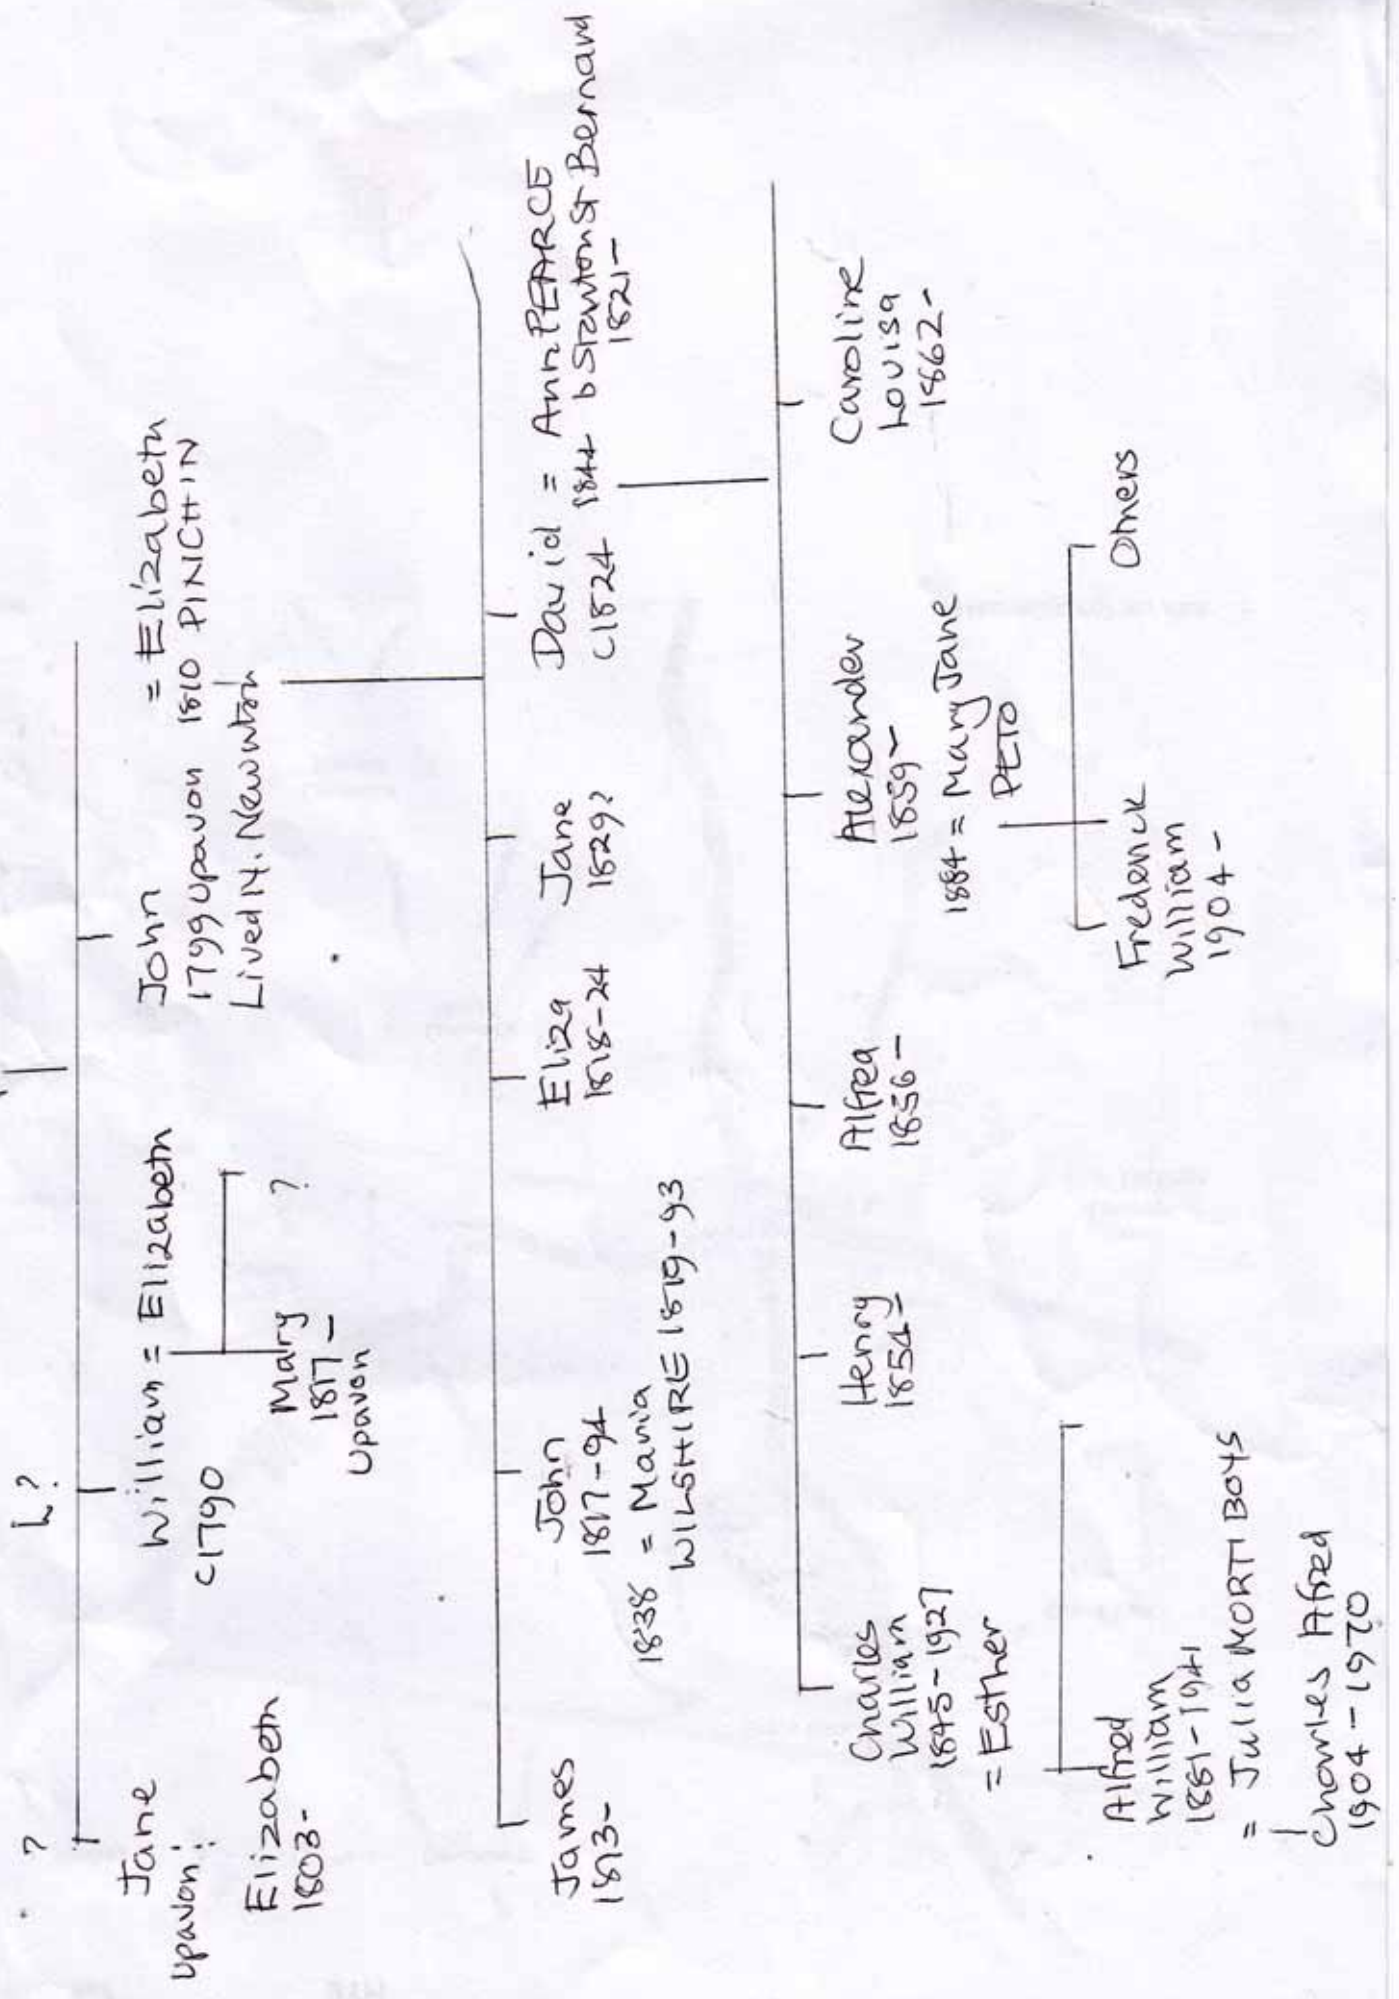 ?
L ?
Jane
Upavon
Elizabeth
1803-
William = Elizabeth
C1790
Mary
1817-
Upavon
?
John = Elizabeth
1799 Upavon 1810 PINCHIN
Lived N. Newnton
James
1813-
John
1817-94
1838 = Maria
WILSHIRE 1819-93
Eliza
1818-24
Jane
1829?
David = Ann PEARCE
C1824 1844 b Stanton St Bernard
1821-
Charles
William
1845-1927
= Esther
Henry
1854-
Alfred
1856-
Alexander
1859-
1884 = Mary Jane
PETO
Caroline
Louisa
1862-
Alfred
William
1881-1941
= Julia MORTIBOYS
Charles Alfred
1904-1970
Frederick
William
1904-
Others